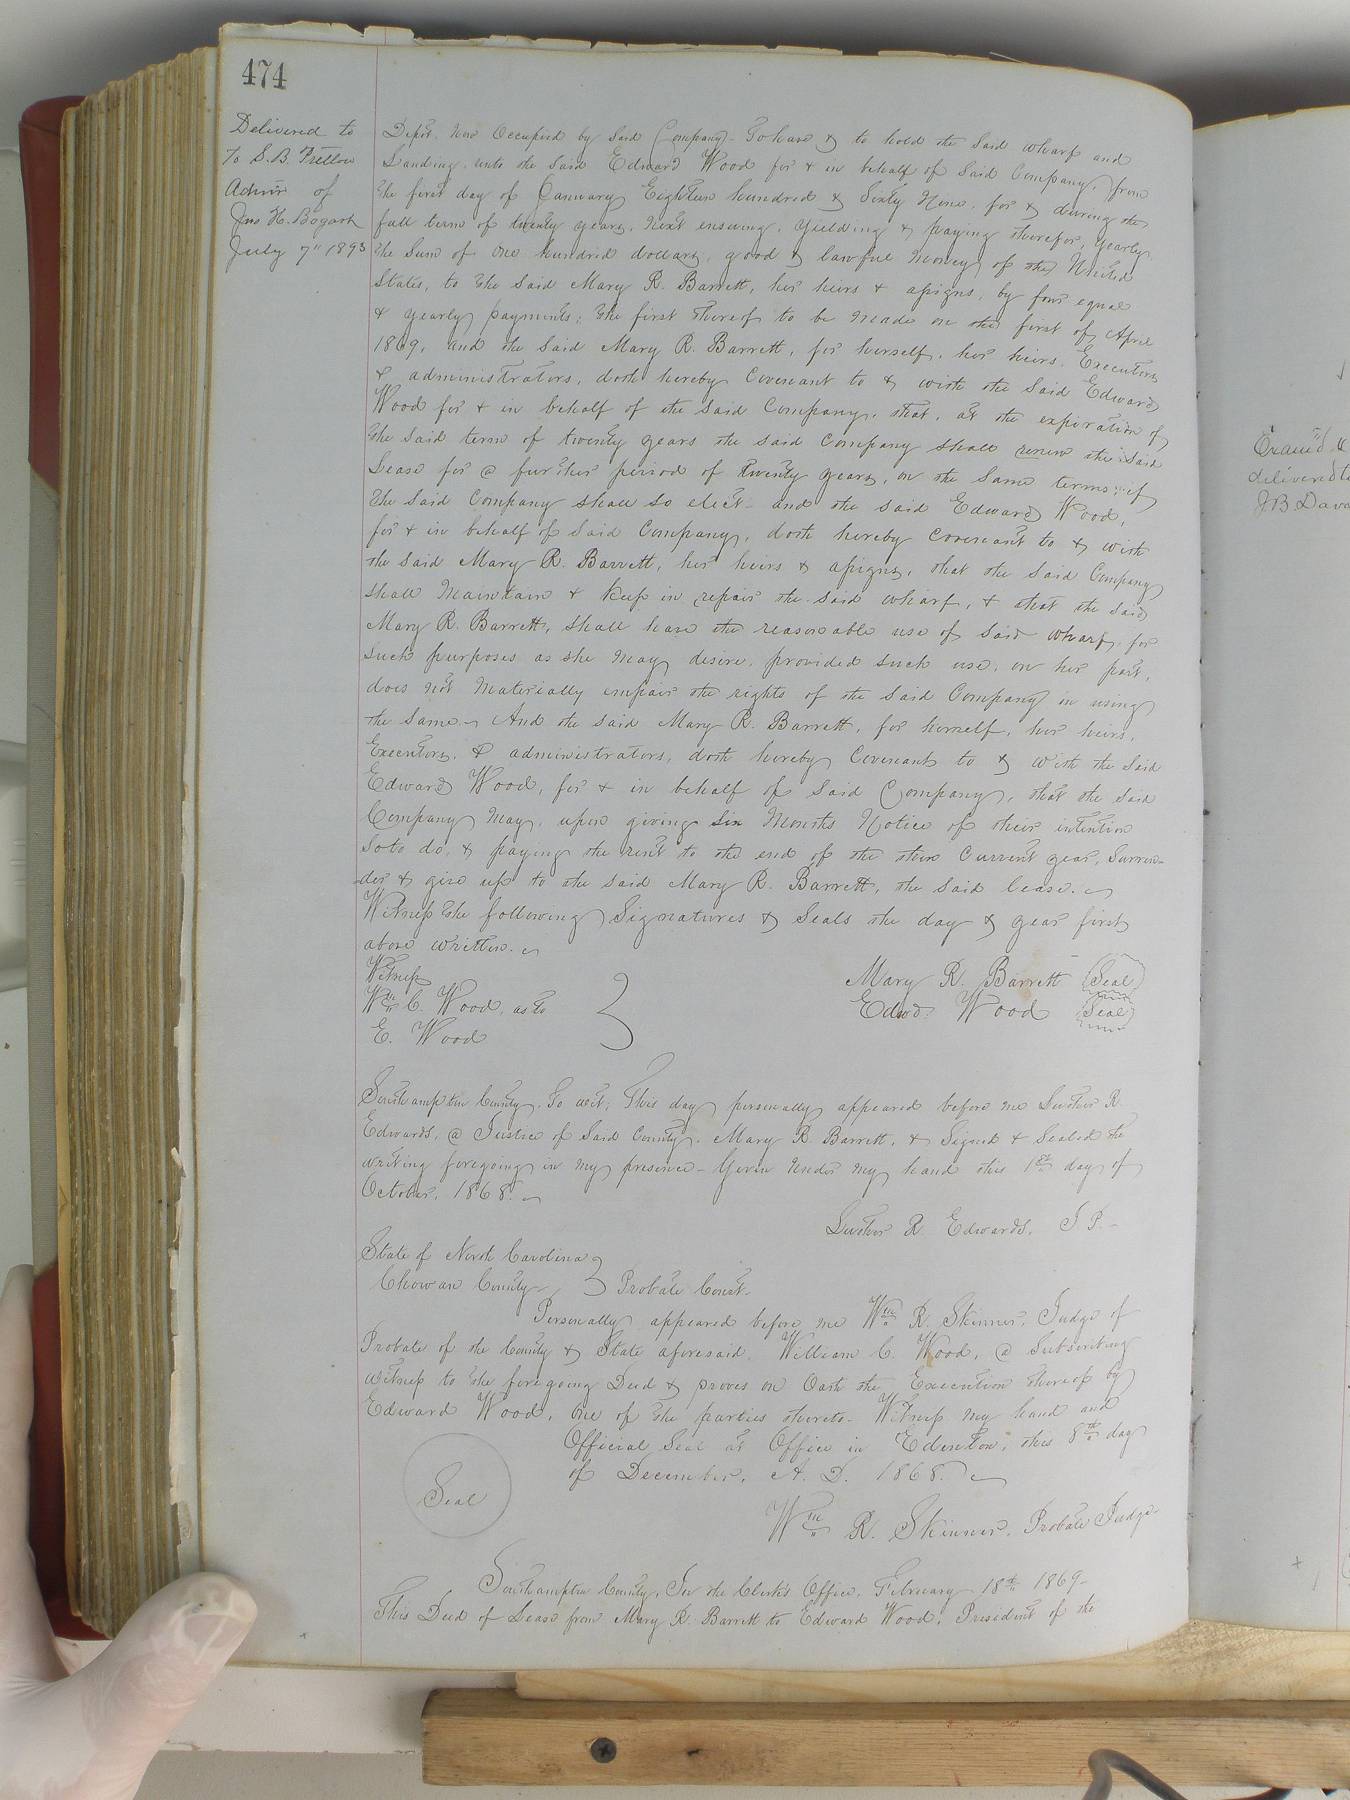 474
Delivered to
to S. B. Pretlow
Admr of
Jno H. Bogart
July 7" 1893
Depot now Occupied by Said Company. To have & to hold the said wharf and
Landing, unto the said Edward Wood for & in behalf of Said Company, from
the first day of January Eighteen hundred & Sixty Nine, for & during the
full term of twenty years, next ensuing, yielding & paying therefor, yearly,
the Sum of One hundred dollars, good & lawful money of the United
States, to the said Mary R. Barrett, her heirs & assigns, by four equal
& yearly payments; the first thereof to be made on the first of April
1869, and the said Mary R. Barrett, for herself, her heirs, Executors
& administrators, doth hereby Covenant to & with the said Edward
Wood for & in behalf of the said Company, that, at the expiration of
the said term of twenty years the said Company shall renew the said
Lease for a further period of twenty years, on the same terms if
the said Company shall so elect - and the said Edward Wood,
for & in behalf of said Company, doth hereby covenant to & with
the said Mary R. Barrett, her heirs & assigns, that the said Company
shall maintain & keep in repair the said wharf, & that the said
Mary R. Barrett, shall have the reasonable use of said wharf, for
such purposes as she may desire, provided such use, on her part,
does not materially impair the rights of the said Company in using
the same. And the said Mary R. Barrett, for herself, her heirs,
Executors, & administrators, doth hereby Covenant to & with the said
Edward Wood, for & in behalf of said Company, that the said
Company may, upon giving six Months Notice of their intention
so to do, & paying the rent to the end of the then Current year, Surren-
-der & give up to the said Mary R. Barrett, the said lease.
Witness the following Signatures & Seals the day & year first
above written.
Witness
Wm C. Wood, as to
E. Wood
Mary R. Barrett (Seal)
Edwd. Wood (Seal)
Southampton County, To wit; This day personally appeared before me Luther R.
Edwards, a Justice of Said County, Mary R. Barrett, & Signed & Sealed the
writing foregoing in my presence - Given under my hand this 1st day of
October, 1868.
Luther R. Edwards, J P.
State of North Carolina
Chowan County } Probate Court.
Personally appeared before me Wm R. Skinner, Judge of
Probate of the County & State aforesaid, William C. Wood, a Subscribing
witness to the foregoing Deed & proves on Oath the Execution thereof by
Edward Wood, one of the parties thereto. Witness my hand and
Official Seal at Office in Edenton, this 8th day
of December, A. D. 1868.
Seal
Wm R. Skinner, Probate Judge
Southampton County, In the Clerk's Office, February 18th 1869
This Deed of Lease from Mary R. Barrett to Edward Wood, President of the
Exam'd &
delivered to
J B